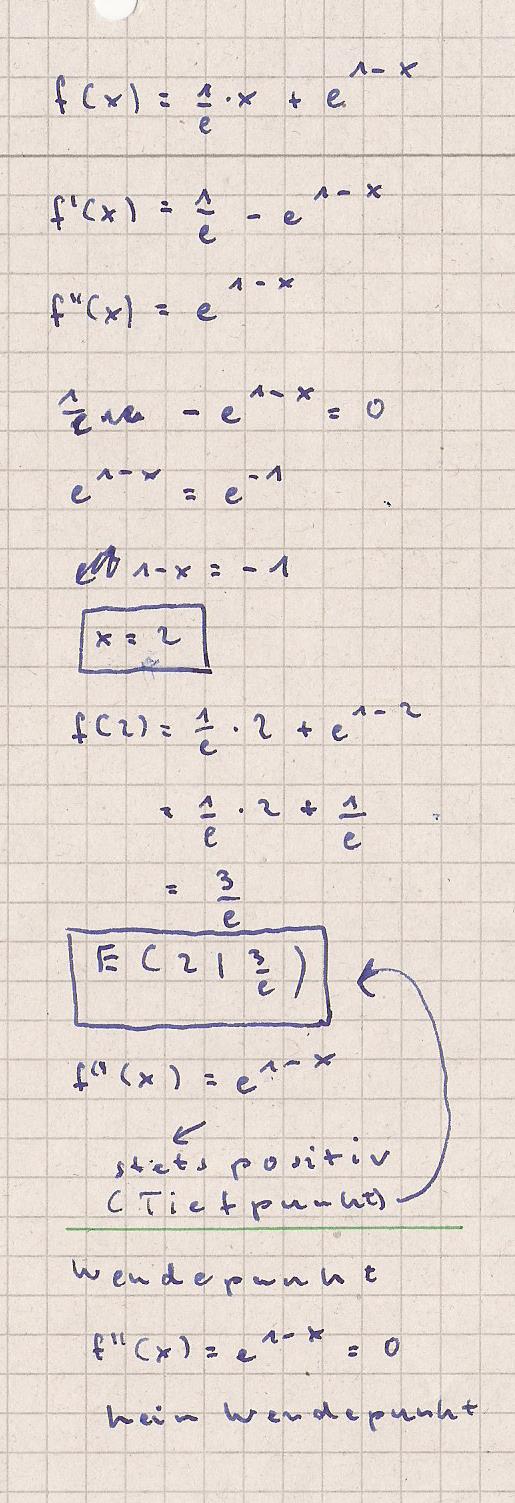 f(x) = 1/e · x + e^(1-x)
f'(x) = 1/e - e^(1-x)
f''(x) = e^(1-x)
1/e - e^(1-x) = 0
e^(1-x) = e^(-1)
1-x = -1
x = 2
f(2) = 1/e · 2 + e^(1-2)
= 1/e · 2 + 1/e
= 3/e
E (2 | 3/e)
f''(x) = e^(1-x)
stets positiv
(Tiefpunkt)
Wendepunkt
f''(x) = e^(1-x) = 0
kein Wendepunkt